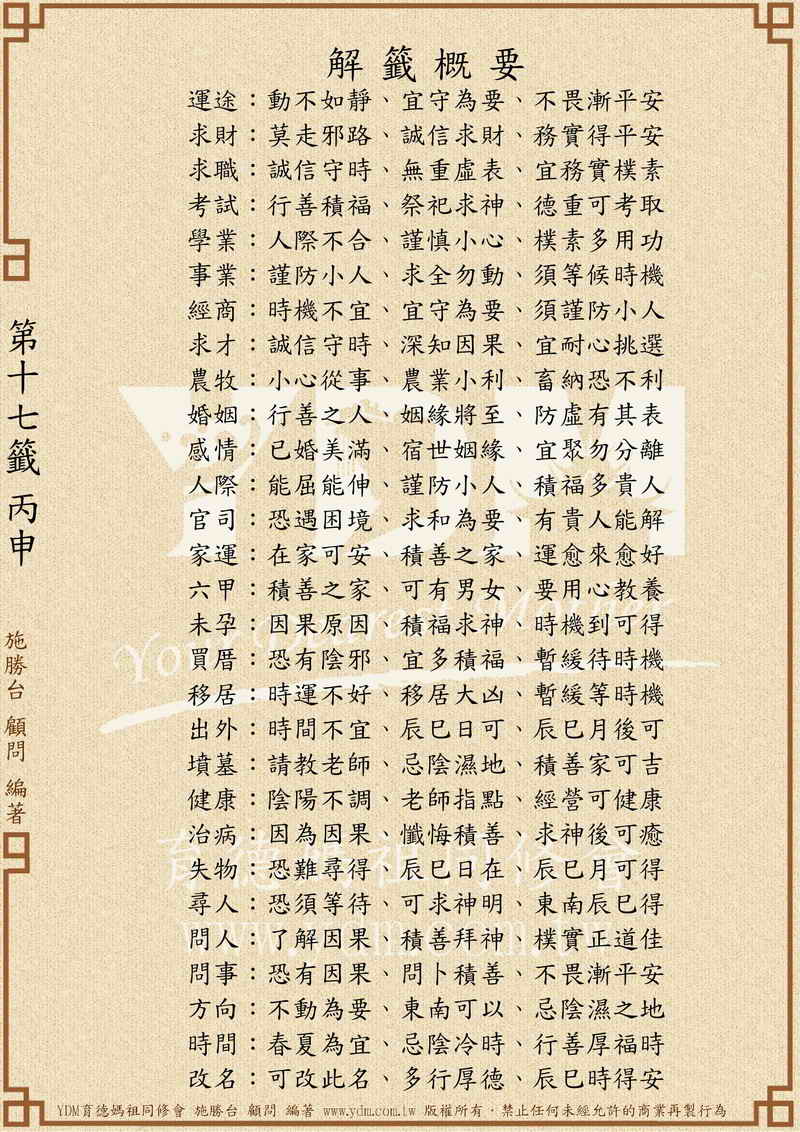 解籤概要
運途：動不如靜、宜守為要、不畏漸平安
求財：莫走邪路、誠信求財、務實得平安
求職：誠信守時、無重虛表、宜務實樸素
考試：行善積福、祭祀求神、德重可考取
學業：人際不合、謹慎小心、樸素多用功
事業：謹防小人、求全勿動、須等候時機
經商：時機不宜、宜守為要、須謹防小人
求才：誠信守時、深知因果、宜耐心挑選
農牧：小心從事、農業小利、畜納恐不利
婚姻：行善之人、姻緣將至、防虛有其表
感情：已婚美滿、宿世姻緣、宜聚勿分離
人際：能屈能伸、謹防小人、積福多貴人
官司：恐遇困境、求和為要、有貴人能解
家運：在家可安、積善之家、運愈來愈好
六甲：積善之家、可有男女、要用心教養
未孕：因果原因、積福求神、時機到可得
買厝：恐有陰邪、宜多積福、暫緩待時機
移居：時運不好、移居大凶、暫緩等時機
出外：時間不宜、辰巳日可、辰巳月後可
墳墓：請教老師、忌陰濕地、積善家可吉
健康：陰陽不調、老師指點、經營可健康
治病：因為因果、懺悔積善、求神後可癒
失物：恐難尋得、辰巳日在、辰巳月可得
尋人：恐須等待、可求神明、東南辰巳得
問人：了解因果、積善拜神、樸實正道佳
問事：恐有因果、問卜積善、不畏漸平安
方向：不動為要、東南可以、忌陰濕之地
時間：春夏為宜、忌陰冷時、行善厚福時
改名：可改此名、多行厚德、辰巳時得安
第十七籤 丙申
施勝台 顧問 編著
YDM
Your Dearest Mother
育德媽祖同修會
www.ydm.com.tw
YDM育德媽祖同修會 施勝台 顧問 編著 www.ydm.com.tw 版權所有，禁止任何未經允許的商業再製行為